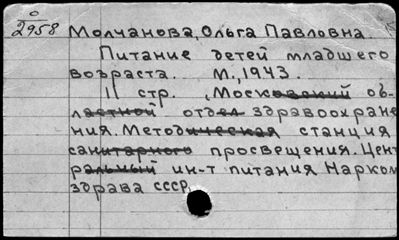 0
2958
Молчанова, Ольга Павловна.
Питание детей младшего
возраста. М., 1943.
11 стр. (Московский об-
ластной отдел здравоохране
ния. Методическая станция
санитарного просвещения. Цент
ральный ин-т питания Нарком
здрава СССР